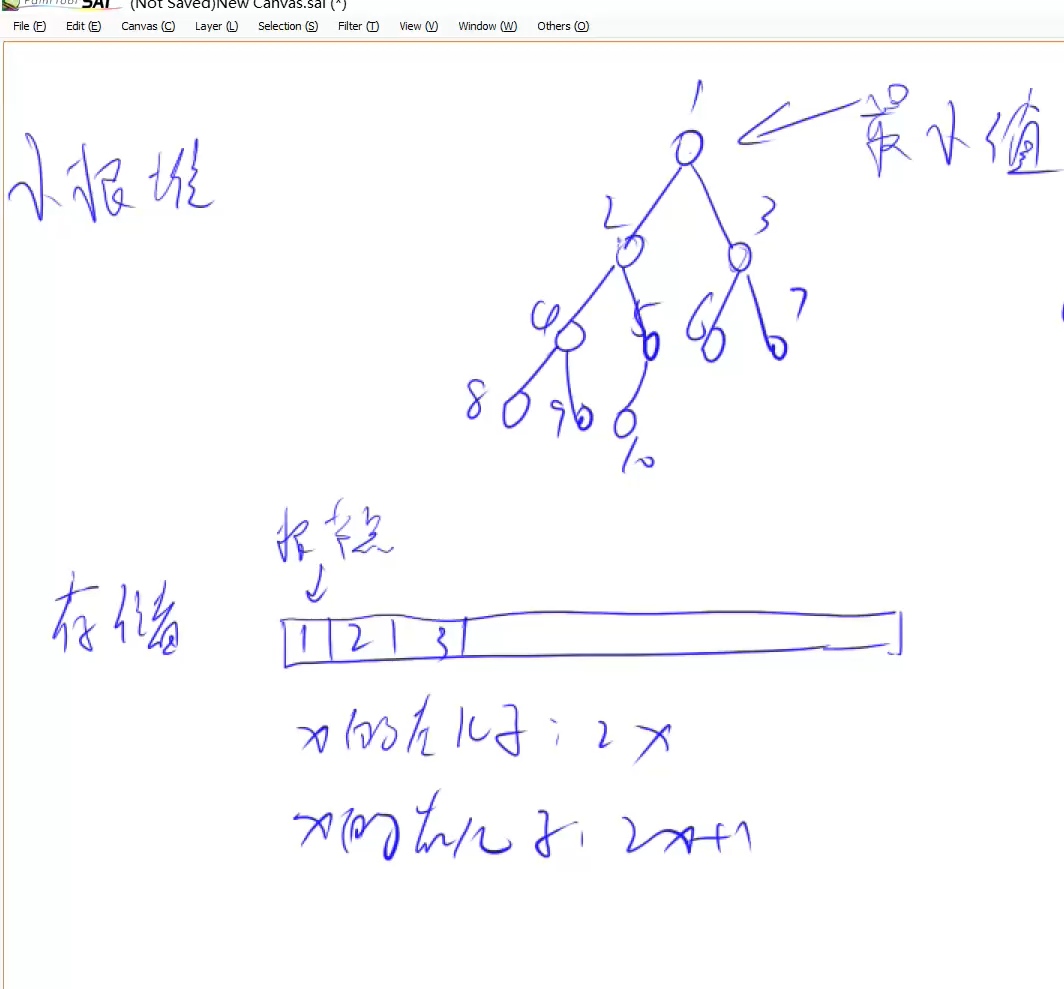 PaintTool SAI (Not Saved)New Canvas.sai (*)
File (F) Edit (E) Canvas (C) Layer (L) Selection (S) Filter (T) View (V) Window (W) Others (O)
小根堆
1
最小值
2 3
4 5 6 7
8 9
10
根节点
存储
1 2 3
x的左儿子: 2x
x的右儿子: 2x+1